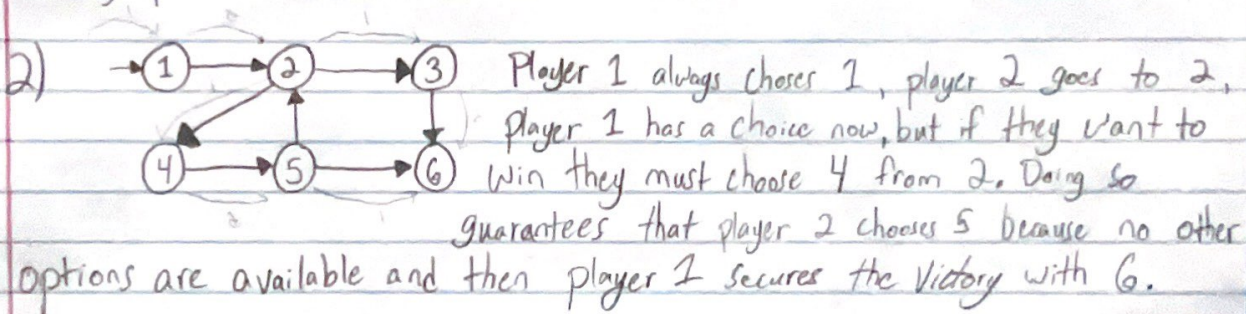 2) 1 2 3 Player 1 always choses 1, player 2 goes to 2,
player 1 has a choice now, but if they want to
4 5 6 win they must choose 4 from 2. Doing so
guarantees that player 2 chooses 5 because no other
options are available and then player 1 secures the victory with 6.